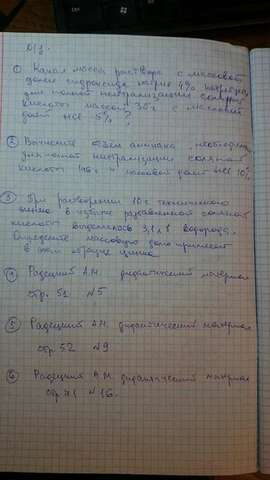 ① Какая масса раствора с массовой
долей гидроксида натрия 4% необходима
для полной нейтрализации соляной
кислоты массой 30г с массовой
долей HCl - 5% ?
② Вычислите объем аммиака, необходимого
для полной нейтрализации соляной
кислоты 146г и массовой долей HCl 10%
③ При растворении 16г технического
цинка в избытке разбавленной соляной
кислоты выделилось 3,1 л водорода.
Определите массовую долю примесей
в этом образце цинка.
④ Радецкий А.М. дидактический материал
стр. 51 №5
⑤ Радецкий А.М. дидактический материал
стр 52 №9
⑥ Радецкий А.М. дидактический материал
стр 71 №16.